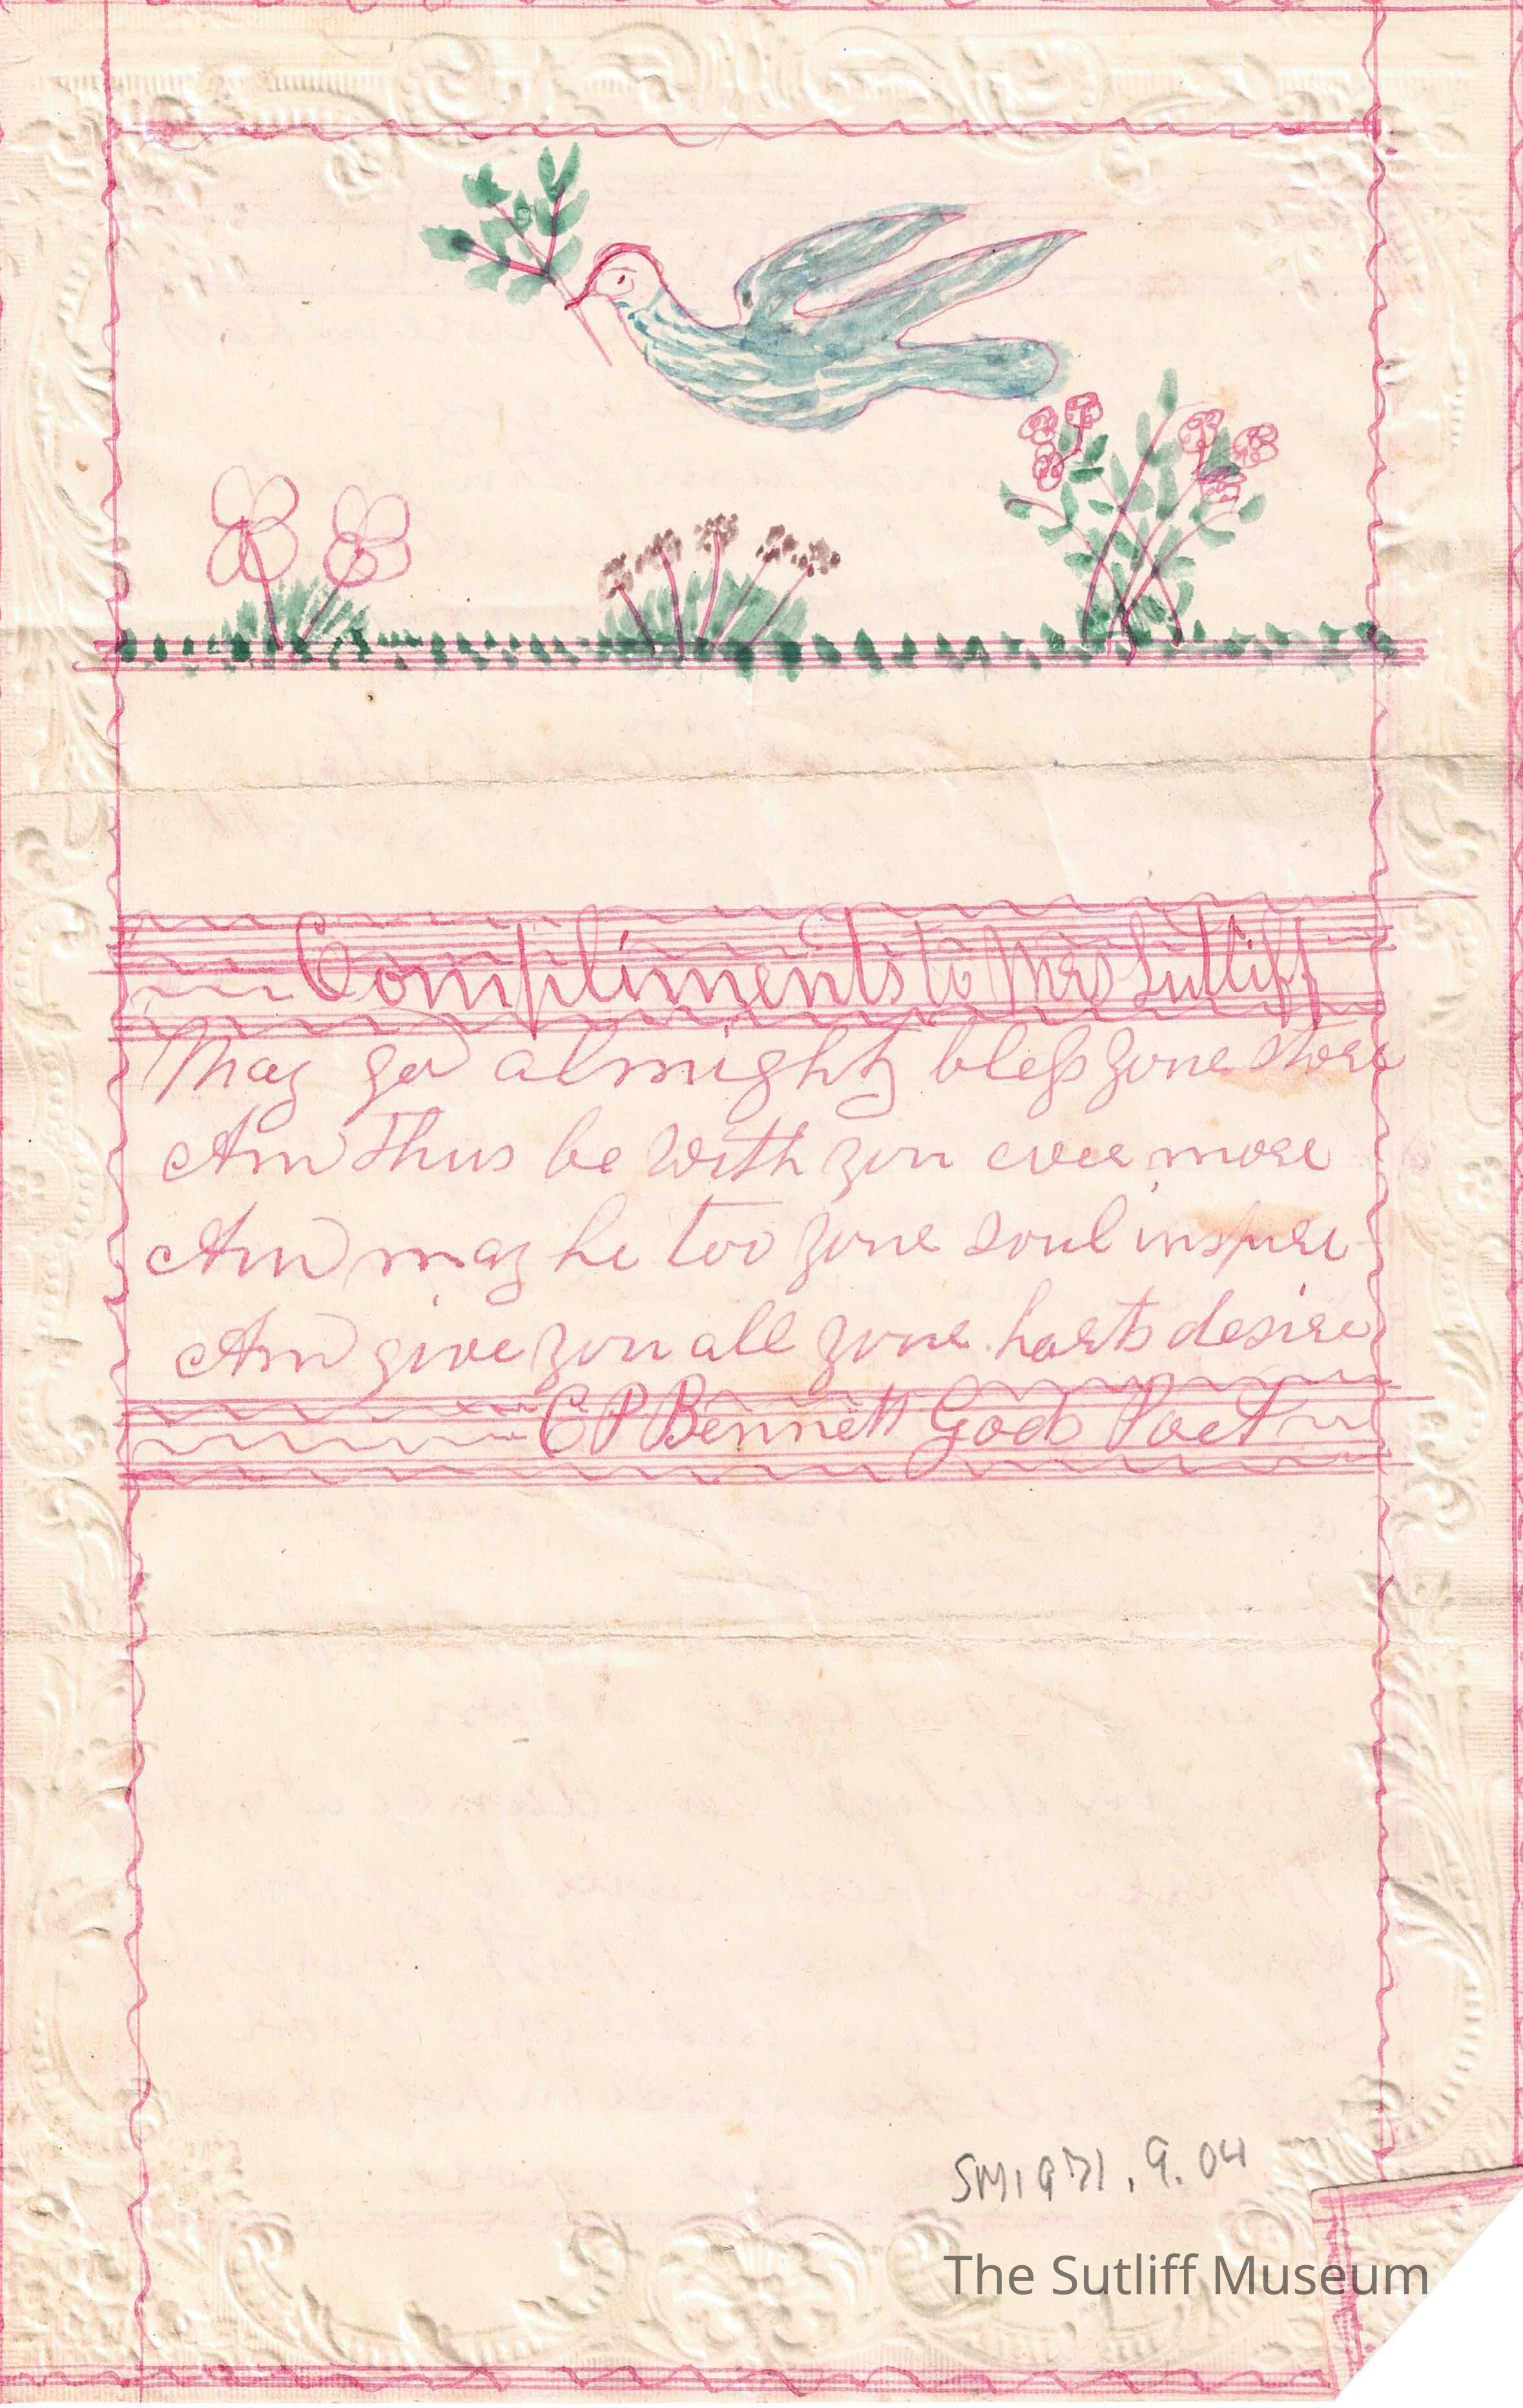 Compliments to Mrs Sutliff
May god almighty bless youre store
And Thus be with you ever more
And may he too youre soul inspire
And give you all youre harts desire
C P Bennett Gods Poet
SM1971.9.04
The Sutliff Museum